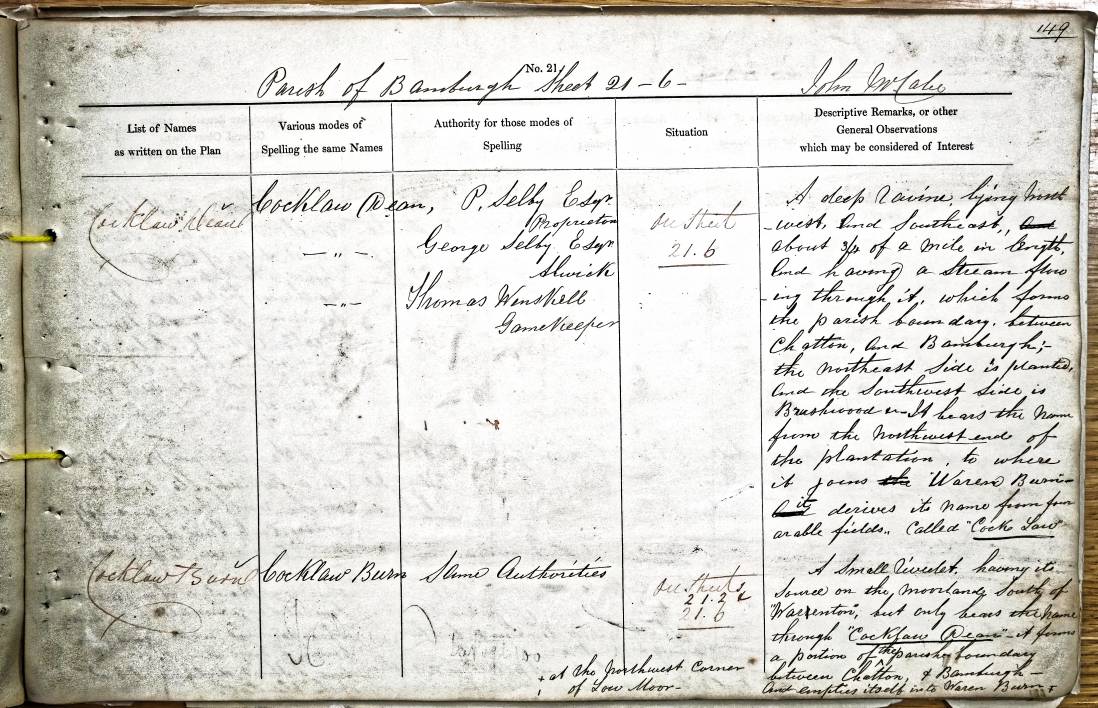 149
No. 21
Parish of Bamburgh Sheet 21-6-
John McCabe
List of Names
as written on the Plan
Various modes of
Spelling the same Names
Authority for those modes of
Spelling
Situation
Descriptive Remarks, or other
General Observations
which may be considered of Interest
Cocklaw Dean
Cocklaw Dean,
— " —
— " —
P. Selby Esqr.
Proprietor
George Selby Esqr.
Alwick
Thomas Winskell
GameKeeper
On Sheet
21.6
A deep ravine, lying North
-west, And Southeast, And
about 3/4 of a Mile in length,
And having a Stream flow
-ing through it, which forms
the parish boundary, between
Chatton, And Bamburgh;-
the Northeast Side is planted,
And the Southwest Side is
Brushwood - It bears the Name
from the Northwest end of
the plantation, to where
it joins the "Waren Burn"-
it derives its name from four
arable fields, Called "Cock Law"
Cocklaw Burn
Cocklaw Burn
Same Authorities
On Sheets
21.2 &
21.6
A Small rivulet, having its
Source on the Moorland South of
"Warrenton", but only bears the name
through "Cocklaw Dean" - it forms
a portion of the parish boundary
between Chatton, & Bamburgh -
And empties itself into Waren Burn +
+ at the Northwest Corner
of Low Moor-